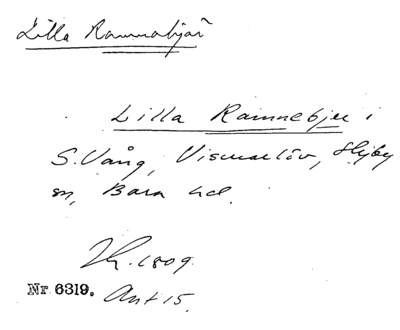 Lilla Ramnabjär
Lilla Ramnebjer i
S. Vång, Vismarlöv, Hyby
sn, Bara hd.
1809.
Nr 6319. Ant 15.